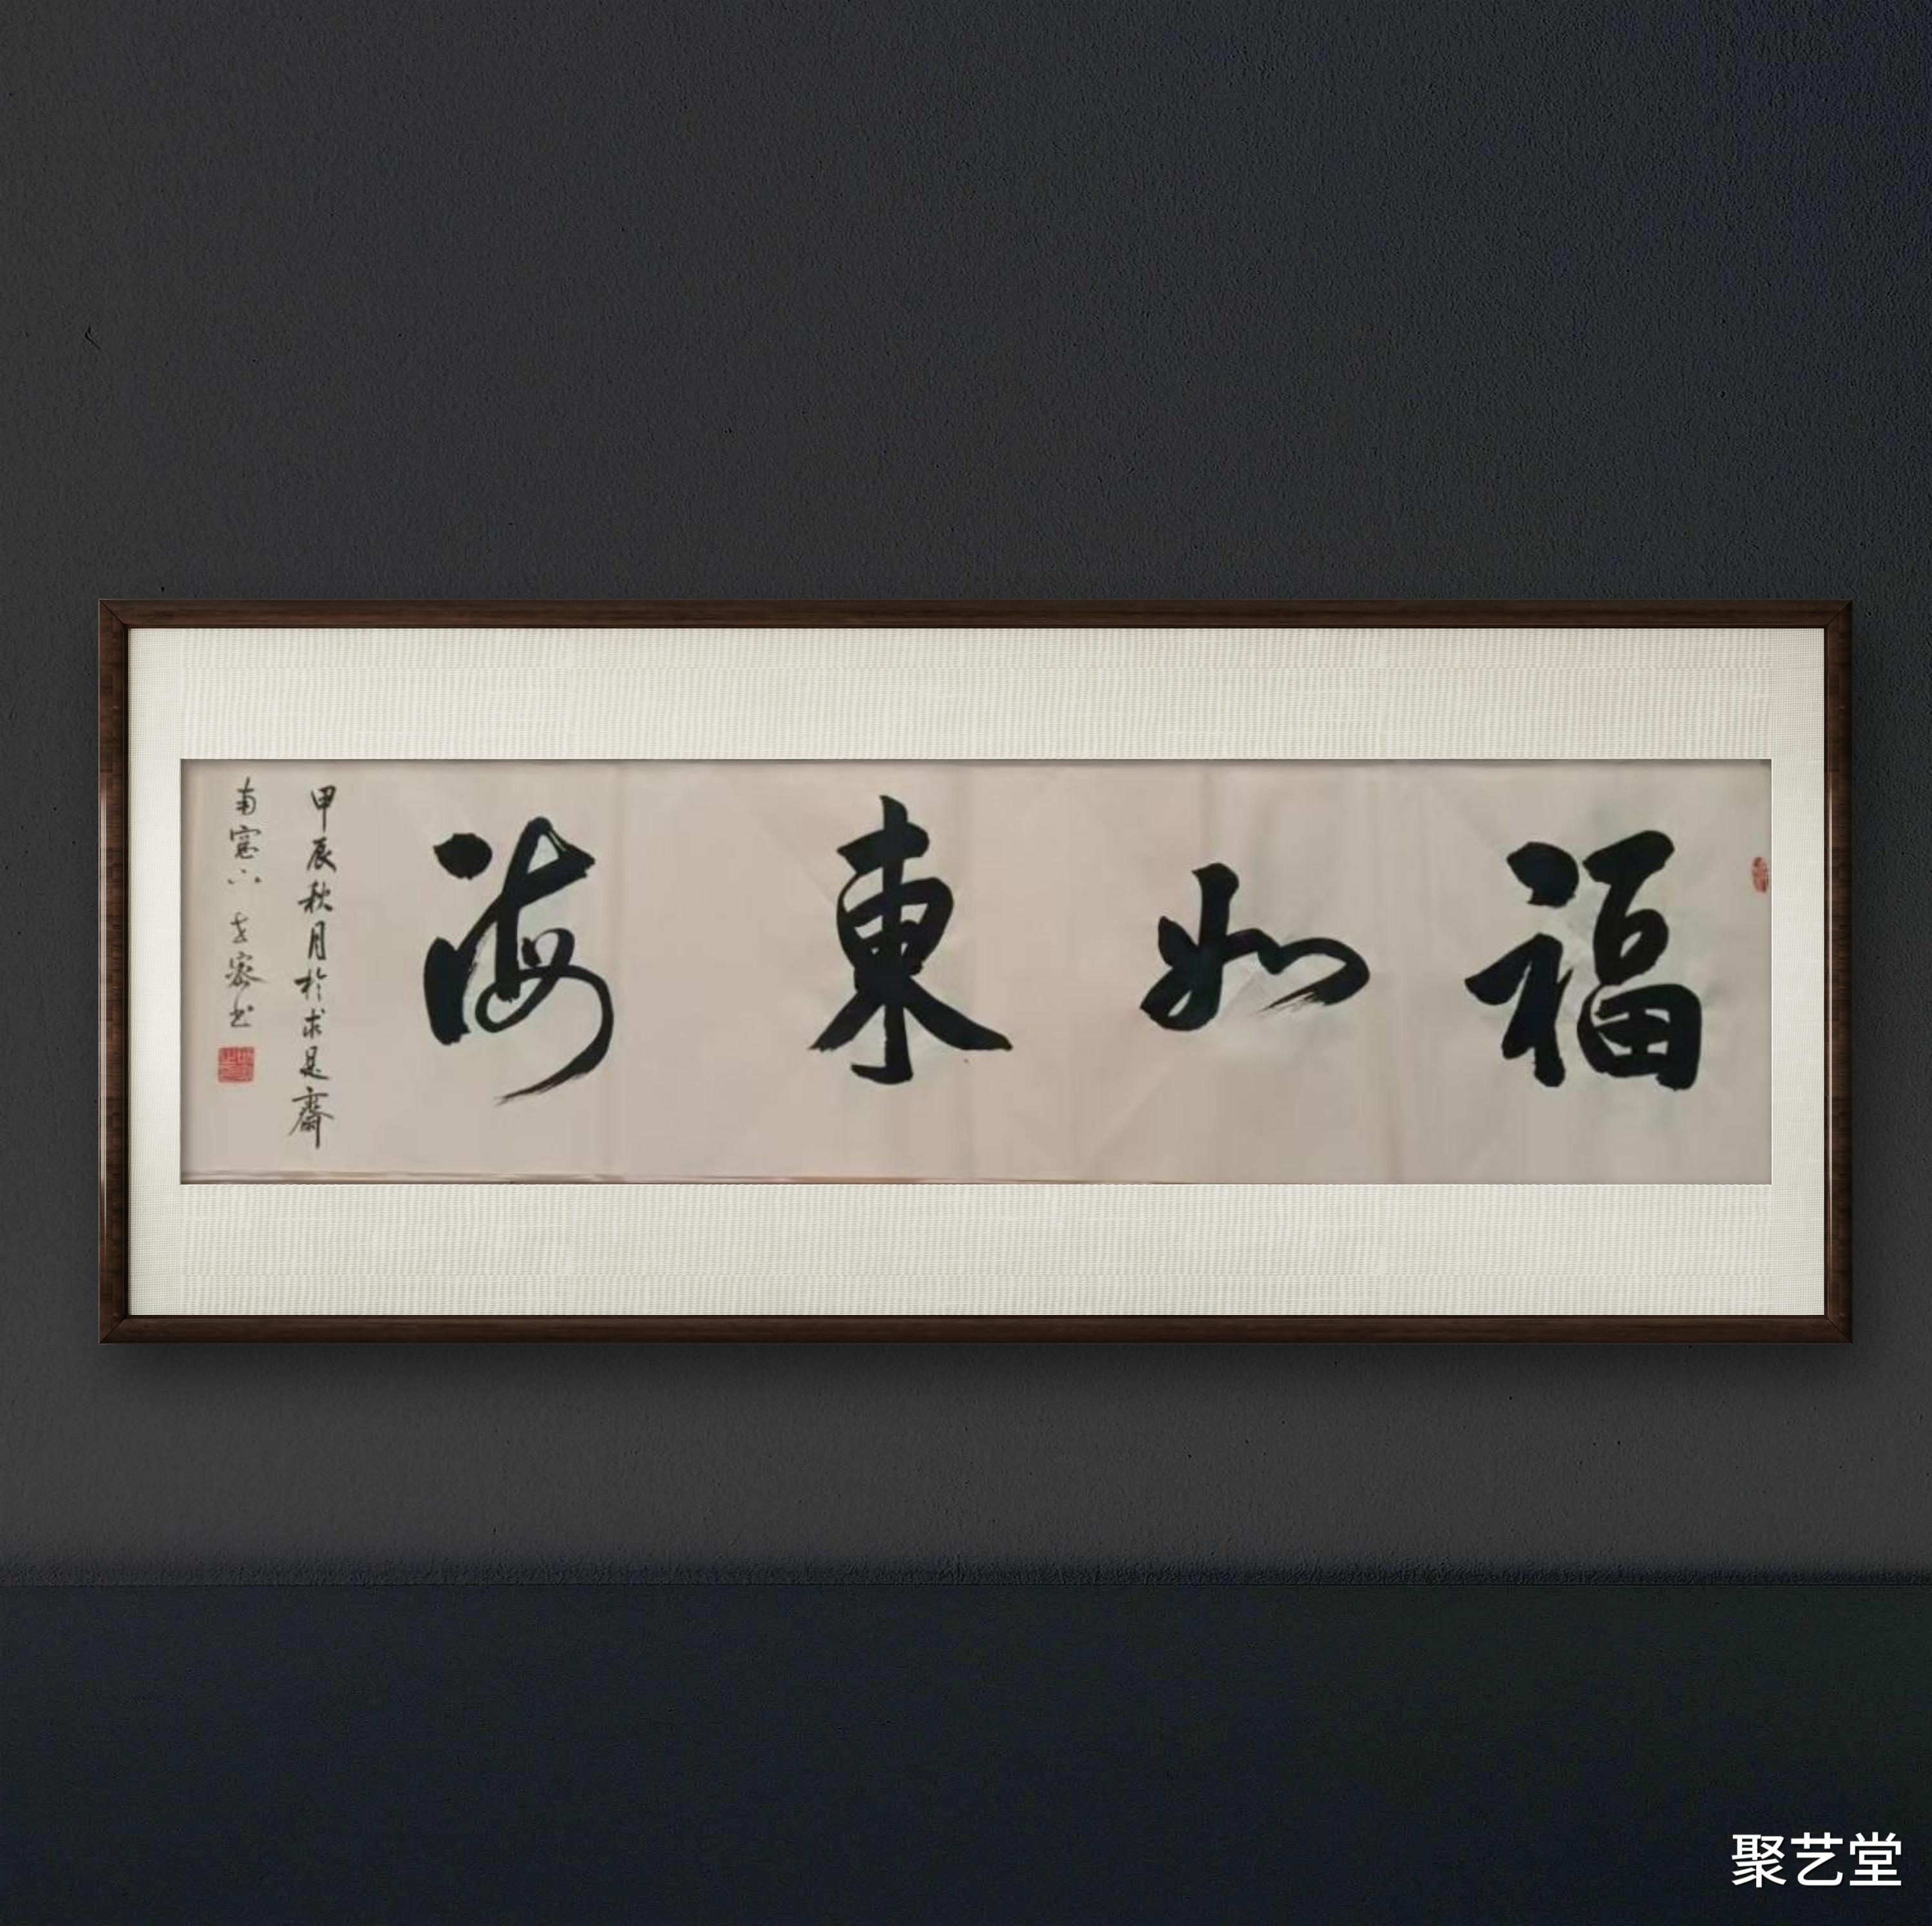 福如東海
甲辰秋月於求是齋
南窓
书
聚艺堂